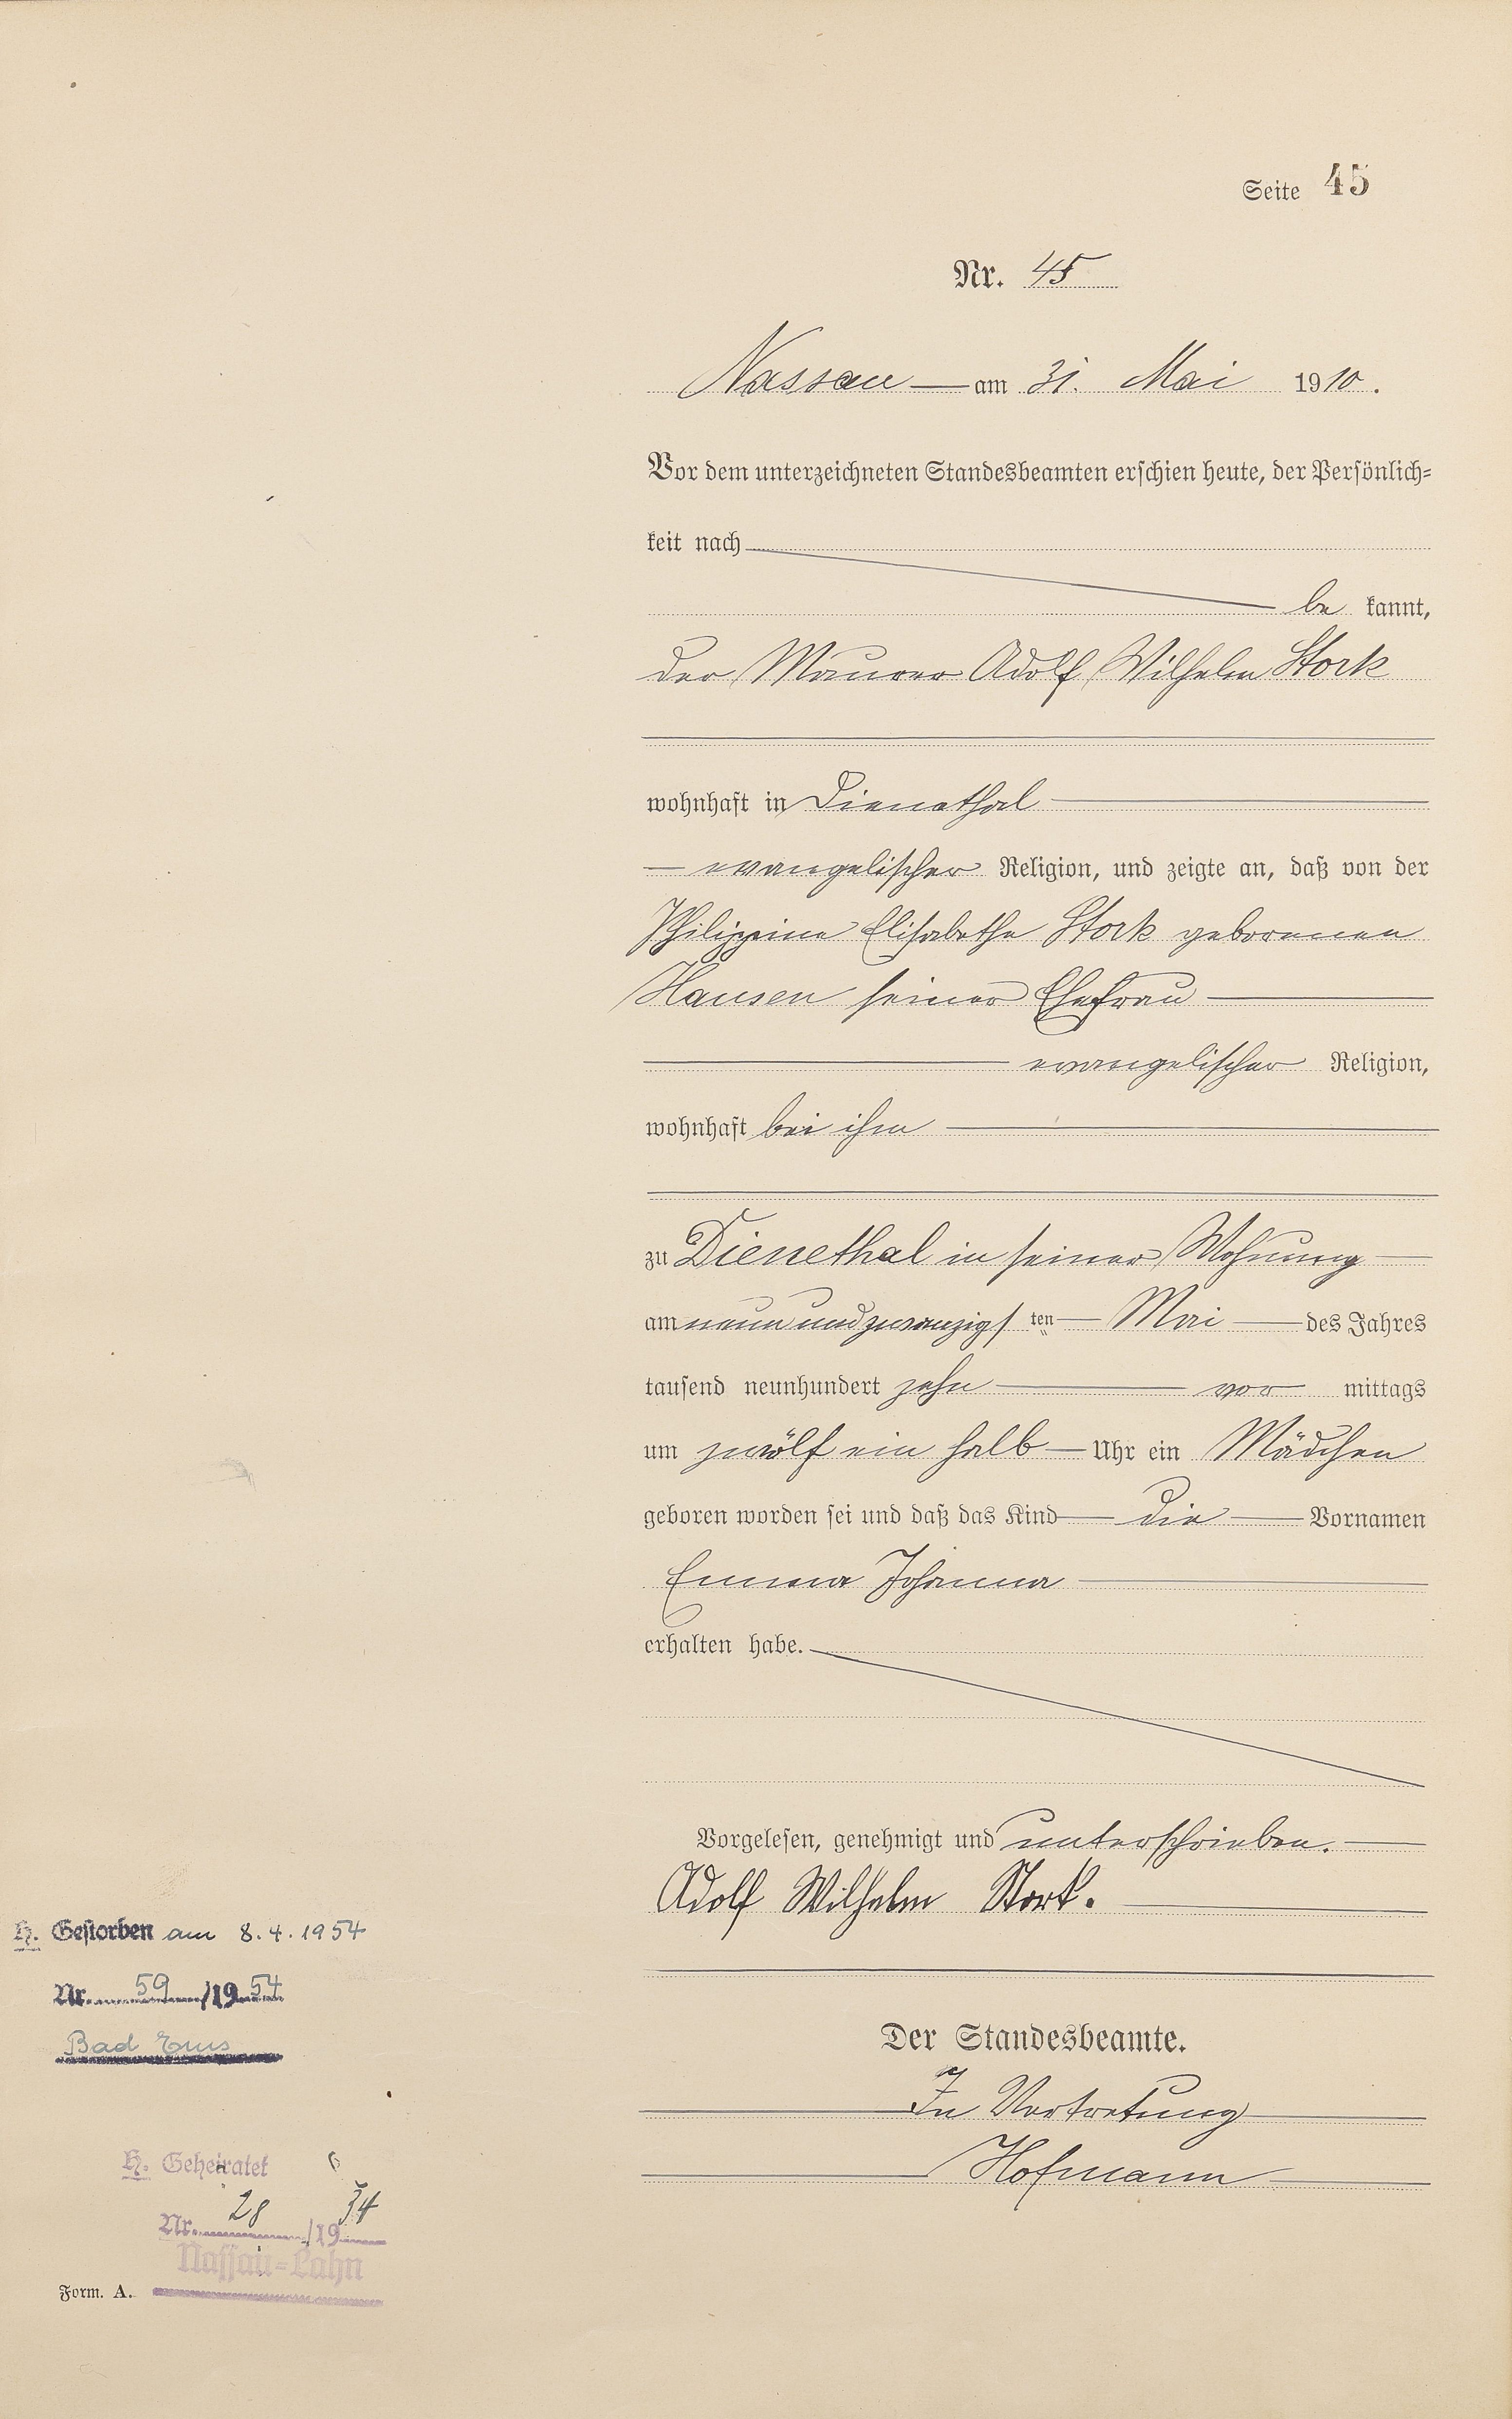 Seite 45
Nr. 45
Nassau am 31. Mai 1910.
Vor dem unterzeichneten Standesbeamten erschien heute, der Persönlich-
keit nach
be kannt,
der Maurer Adolf Wilhelm Stork
wohnhaft in Dienethal
evangelischer Religion, und zeigte an, daß von der
Philippine Elisabethe Stork geborenen
Hansen seiner Ehefrau
evangelischer Religion,
wohnhaft bei ihm
zu Dienethal in seiner Wohnung
am neun und zwanzigsten Mai des Jahres
tausend neunhundert zehn vor mittags
um zwölf ein halb Uhr ein Mädchen
geboren worden sei und daß das Kind die Vornamen
Emma Johanna
erhalten habe.
Vorgelesen, genehmigt und unterschrieben.
Adolf Wilhelm Stork.
Der Standesbeamte.
In Vertretung
Hofmann
H. Gestorben am 8.4.1954
Nr. 59/1954
Bad Ems
H. Geheiratet
Nr. 28/1934
Nassau-Lahn
Form. A.